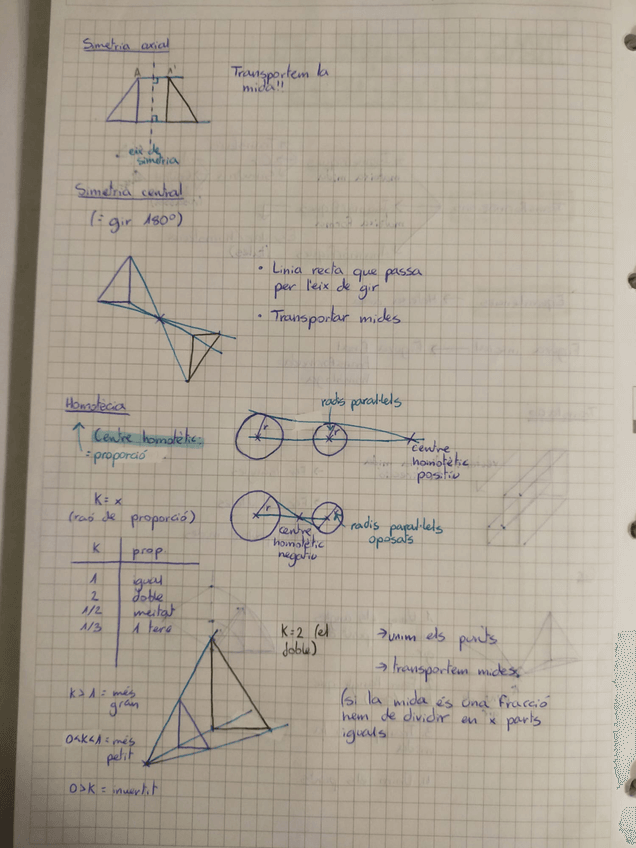 Simetria axial
A A'
Transportem la
mida!!
eix de
simetria
Simetria central
(= gir 180º)
• Línia recta que passa
per l'eix de gir
• Transportar mides
Homotècia
Centre homotètic:
= proporció
radis paral·lels
r r
centre
homotètic
positiu
K = x
(raó de proporció)
r
centre
homotètic
negatiu
radis paral·lels
oposats
K prop.
1 igual
2 doble
1/2 meitat
1/3 1 terç
K=2 (el
doble)
→ unim els punts
→ transportem mides.
(si la mida és una fracció
hem de dividir en x parts
iguals
K>1 = més
gran
0<K<1 = més
petit
0>K = invertit